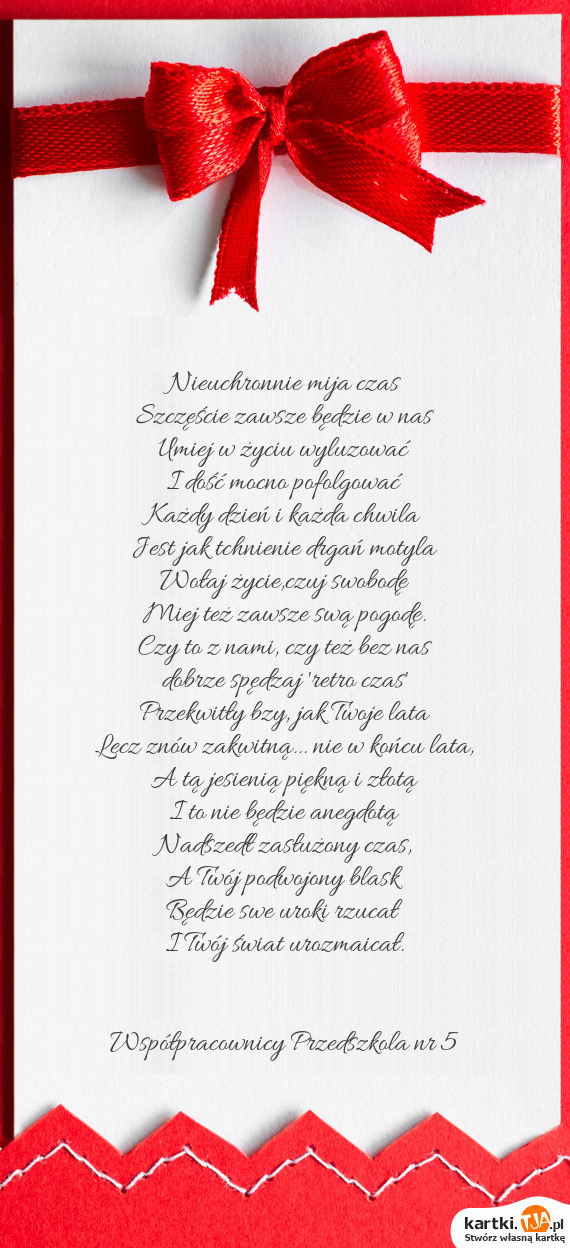 Nieuchronnie mija czas
Szczęście zawsze będzie w nas
Umiej w życiu wyluzować
I dość mocno pofolgować
Każdy dzień i każda chwila
Jest jak tchnienie drgań motyla
Wołaj życie,czuj swobodę
Miej też zawsze swą pogodę.
Czy to z nami, czy też bez nas
dobrze spędzaj 'retro czas'
Przekwitły bzy, jak Twoje lata
Lecz znów zakwitną... nie w końcu lata,
A tą jesienią piękną i złotą
I to nie będzie anegdotą
Nadszedł zasłużony czas,
A Twój podwojony blask
Będzie swe uroki rzucał
I Twój świat urozmaicał.
Współpracownicy Przedszkola nr 5
kartki.TJA.pl
Stwórz własną kartkę